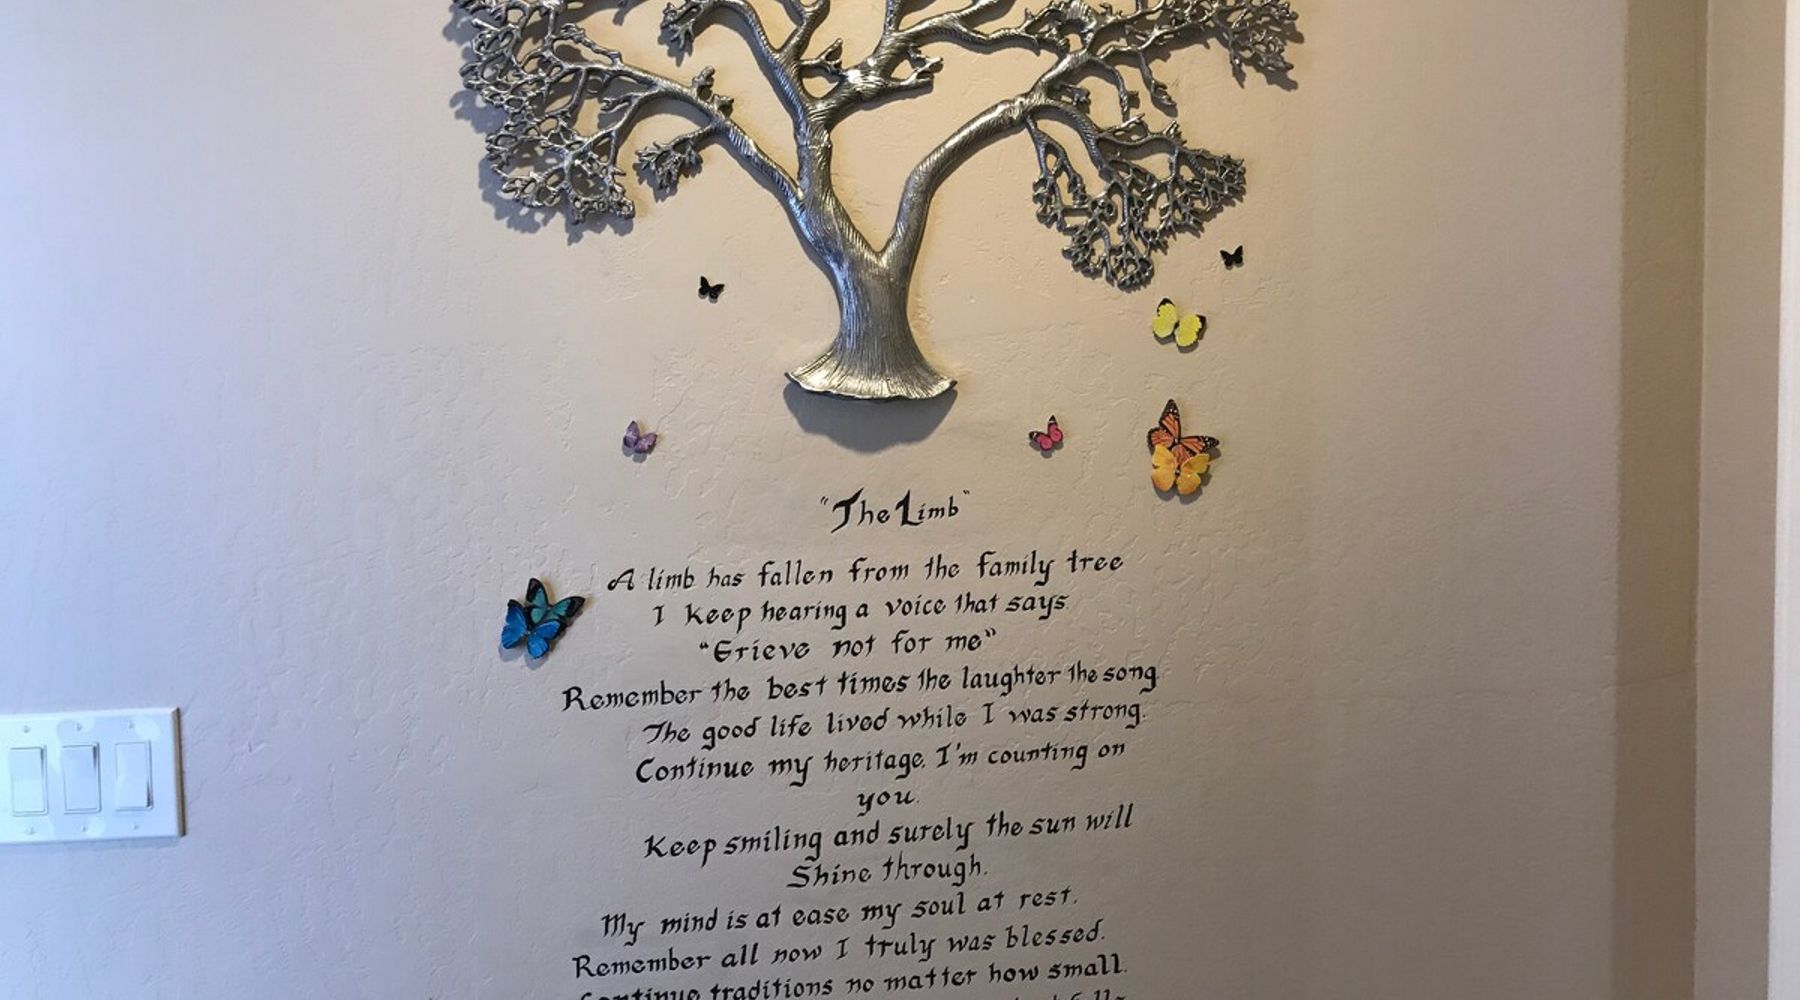 "The Limb"
A limb has fallen from the family tree
I keep hearing a voice that says
"Grieve not for me"
Remember the best times the laughter the song.
The good life lived while I was strong.
Continue my heritage. I'm counting on
you.
Keep smiling and surely the sun will
Shine through.
My mind is at ease my soul at rest.
Remember all now I truly was blessed.
Continue traditions no matter how small.